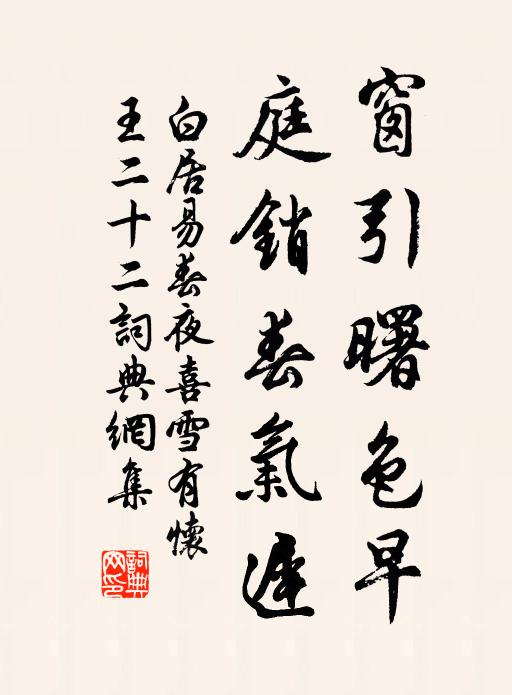 窗引曙色早
庭銷春氣遲
白居易春夜喜雪有懷
王二十二詞典網集
詞典網印